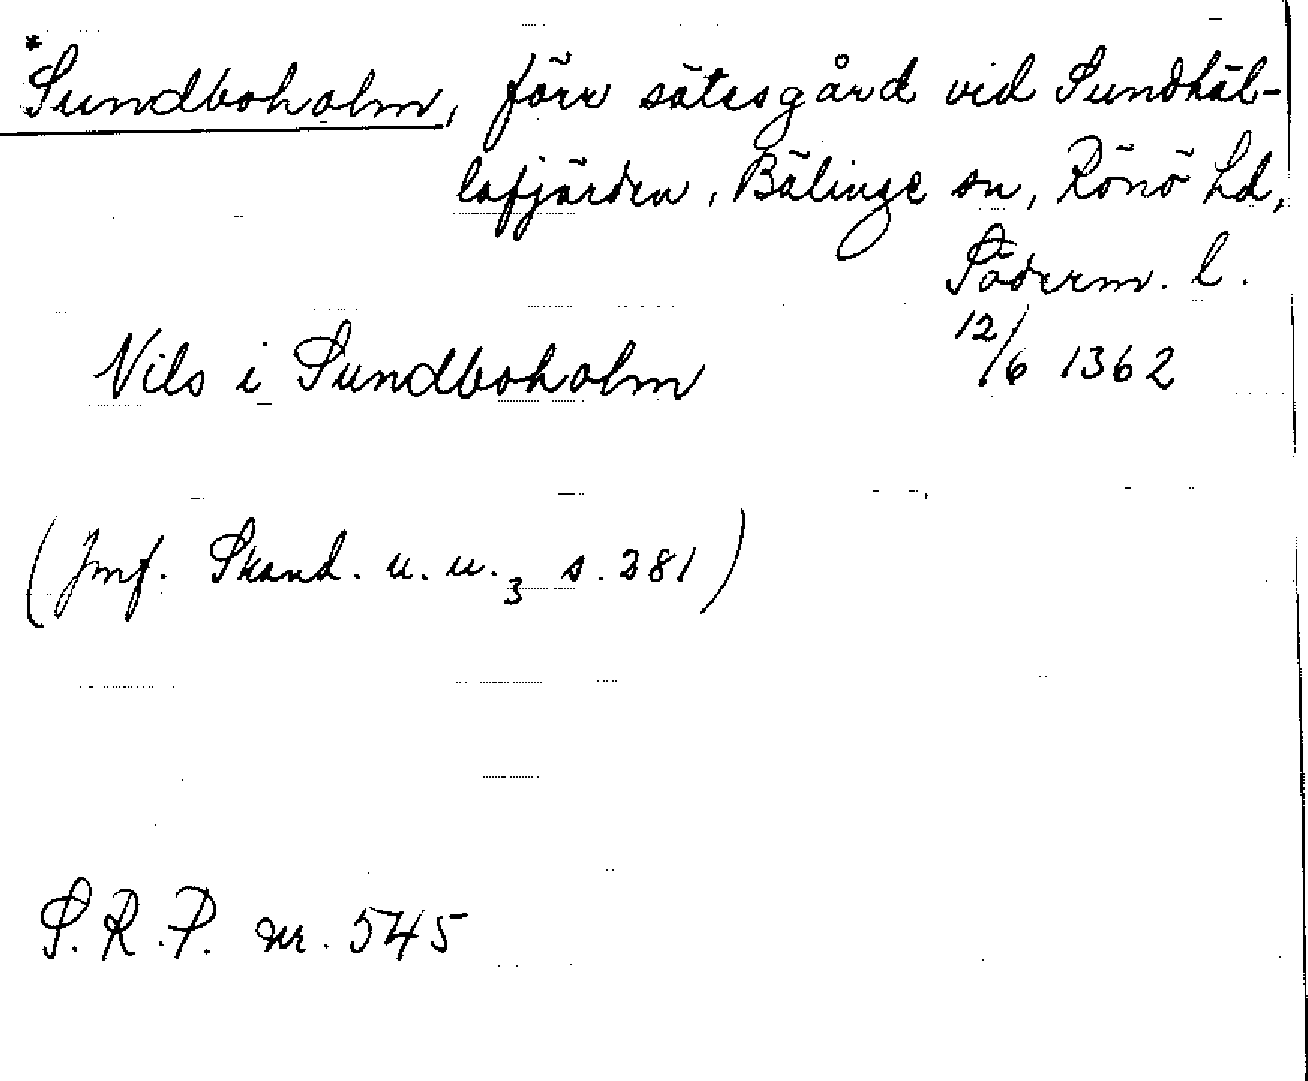 *Sundboholm, förr sätesgård vid Sundhäl-
lafjärden, Bälinge sn, Rönö hd,
Söderm. l.
Nils i Sundboholm 12/6 1362
(Jmf. Skand. u. u. 3 s. 281)
S.R.P. nr. 545